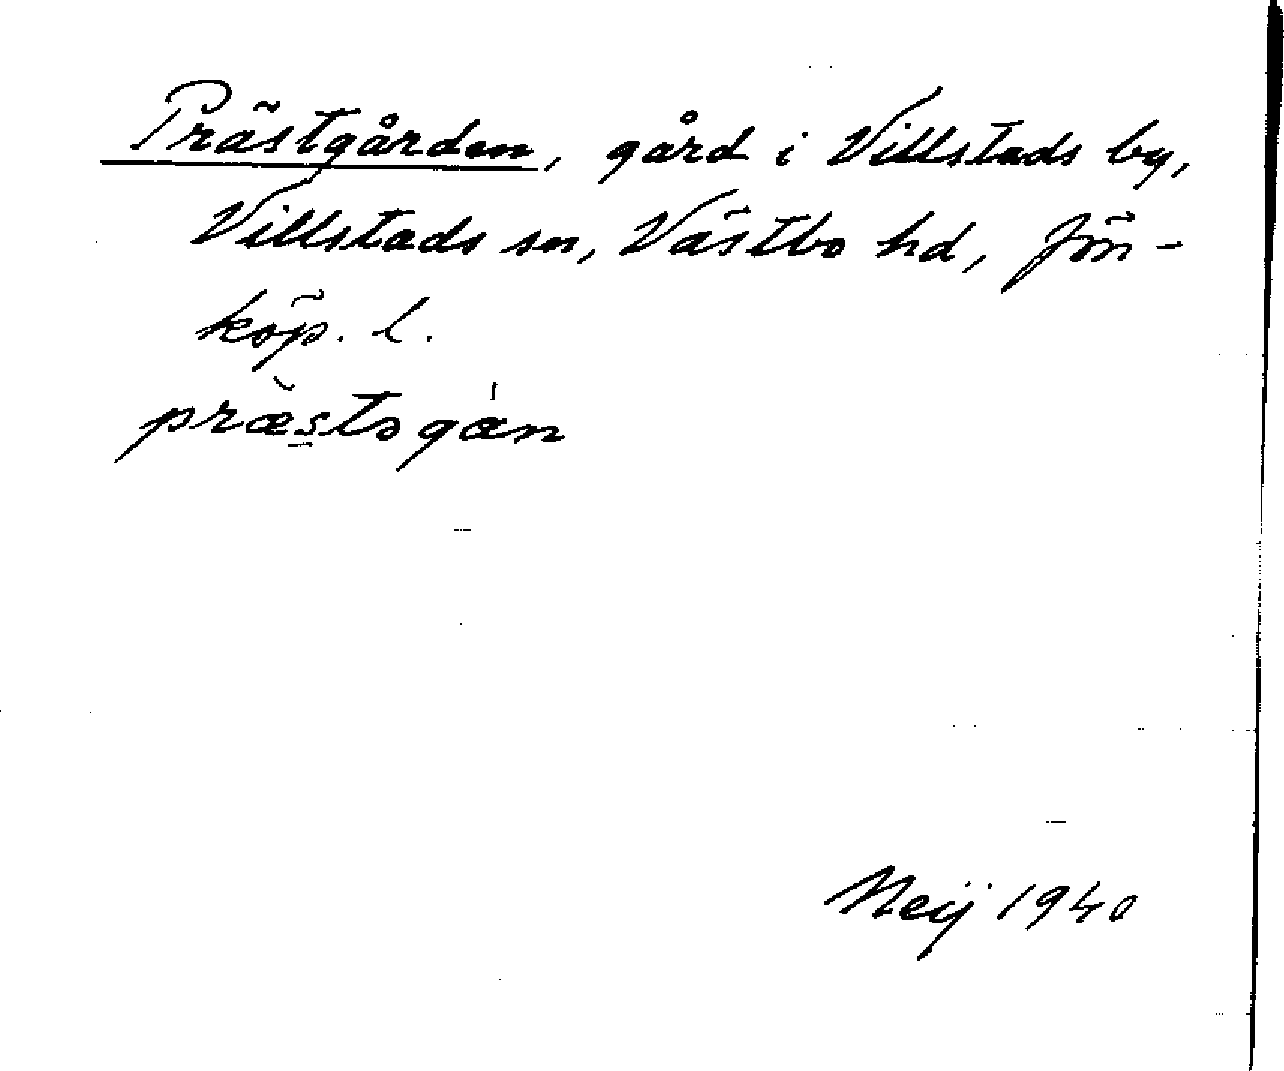 Prästgården, gård i Villstads by,
Villstads sn, Västbo hd, Jön-
köp. l.
præ̀s̲tsgán
Neij 1940